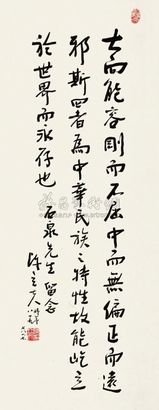 大而能容剛而不屈中而無偏正而遠
邪斯四者為中華民族之特性故能屹立
於世界而永存也
石泉先生留念
陳立夫